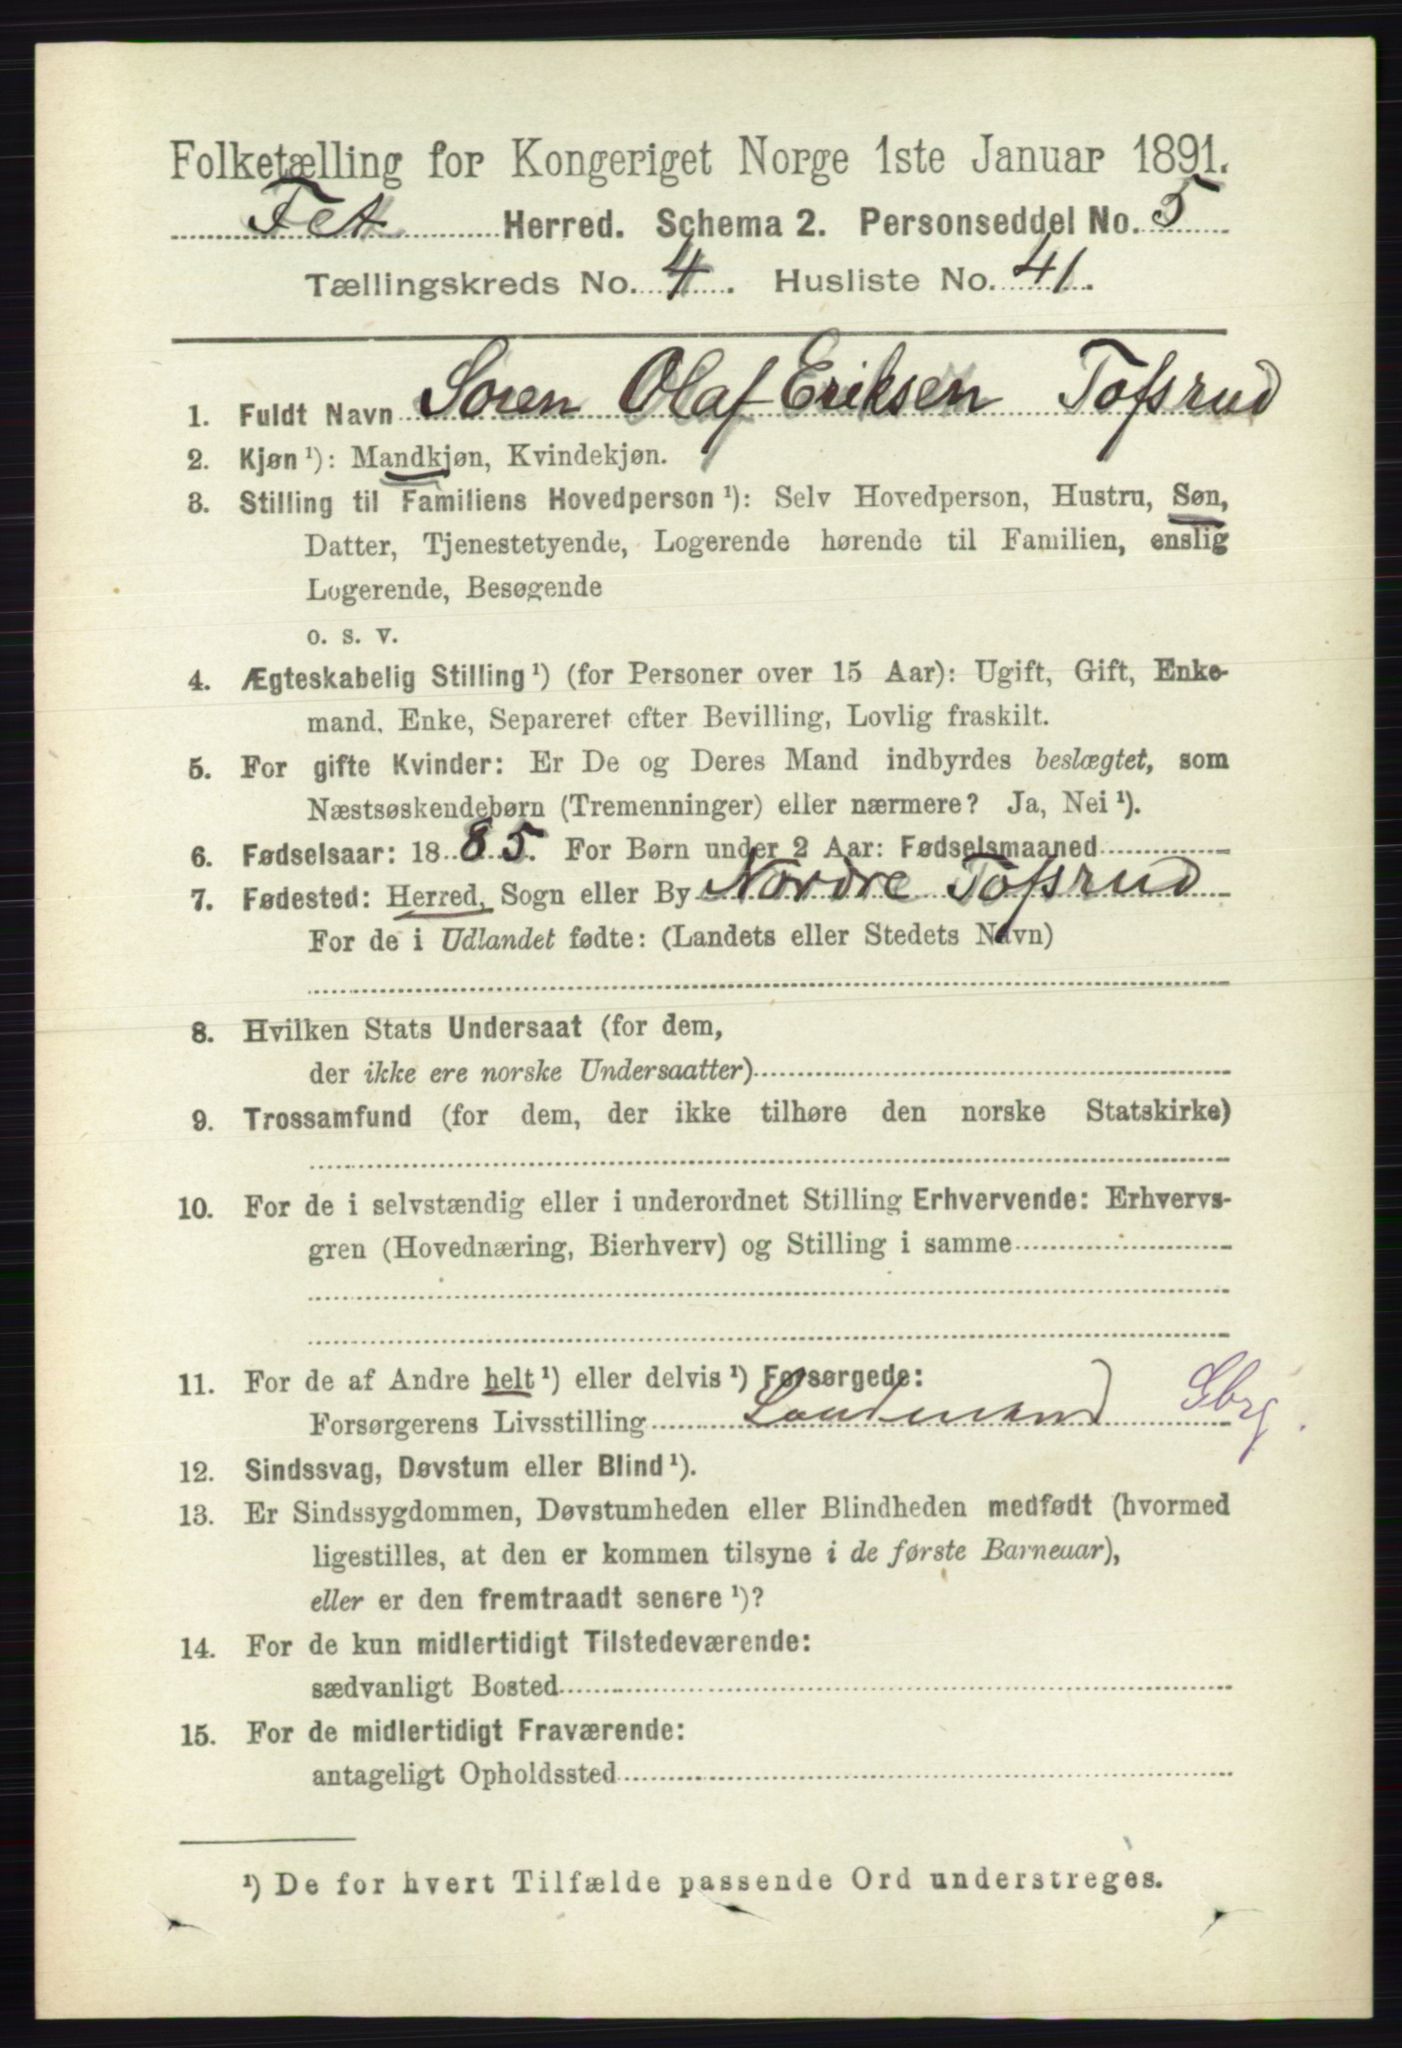 Folketælling for Kongeriget Norge 1ste Januar 1891.
Fet Herred. Schema 2. Personseddel No. 5
Tællingskreds No. 4. Husliste No. 41.
1. Fuldt Navn Soren Olaf Eriksen Tofsrud
2. Kjøn ¹): Mandkjøn, Kvindekjøn.
3. Stilling til Familiens Hovedperson ¹): Selv Hovedperson, Hustru, Søn,
Datter, Tjenestetyende, Logerende hørende til Familien, enslig
Logerende, Besøgende
o. s. v.
4. Ægteskabelig Stilling ¹) (for Personer over 15 Aar): Ugift, Gift, Enke-
mand, Enke, Separeret efter Bevilling, Lovlig fraskilt.
5. For gifte Kvinder: Er De og Deres Mand indbyrdes beslægtet, som
Næstsøskendebørn (Tremenninger) eller nærmere? Ja, Nei ¹).
6. Fødselsaar: 1885. For Børn under 2 Aar: Fødselsmaaned
7. Fødested: Herred, Sogn eller By Nordre Tofsrud
For de i Udlandet fødte: (Landets eller Stedets Navn)
8. Hvilken Stats Undersaat (for dem,
der ikke ere norske Undersaatter)
9. Trossamfund (for dem, der ikke tilhøre den norske Statskirke)
10. For de i selvstændig eller i underordnet Stilling Erhvervende: Erhvervs-
gren (Hovednæring, Bierhverv) og Stilling i samme
11. For de af Andre helt ¹) eller delvis ¹) Forsørgede:
Forsørgerens Livsstilling Landmand Gbrg.
12. Sindssvag, Døvstum eller Blind ¹).
13. Er Sindssygdommen, Døvstumheden eller Blindheden medfødt (hvormed
ligestilles, at den er kommen tilsyne i de første Barneaar),
eller er den fremtraadt senere ¹)?
14. For de kun midlertidigt Tilstedeværende:
sædvanligt Bosted
15. For de midlertidigt Fraværende:
antageligt Opholdssted
¹) De for hvert Tilfælde passende Ord understreges.